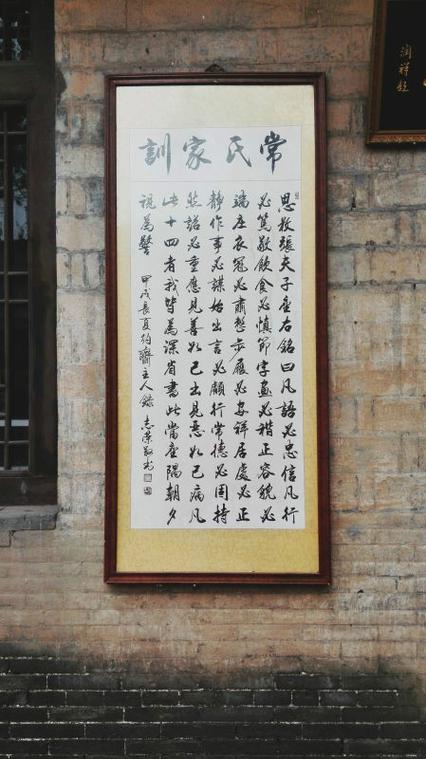 常氏家訓
思叔張夫子座右銘曰凡語必忠信凡行
必篤敬飲食必慎節字畫必楷正容貌必
端庄衣冠必肅整步履必安詳居處必正
靜作事必謀始出言必顧行常德必固持
然諾必重應見善如己出見惡如己病凡
此十四者我皆為深省書此當座隅朝夕
視為警 甲戌長夏約齋主人錄 志榮敬書